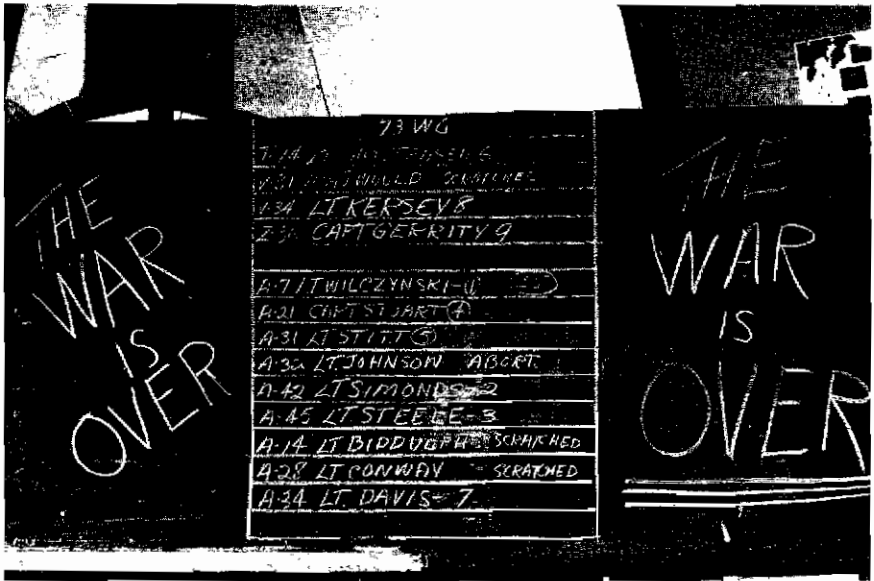 THE
WAR
IS
OVER
73 WG
SCRATCHED
LT KERSEY 8
CAPT GERRITY 9
A-7 LT WILCZYNSKI-1
A-21 CAPT STUART 4
A-31 LT STITT 5
A-32 LT. JOHNSON ABORT
A-42 LT SIMONDS-2
A-45 LT STEELE-3
A-14 LT BIDDULPH SCRATCHED
A-28 LT CONWAY - SCRATCHED
A-34 LT. DAVIS-7
THE
WAR
IS
OVER